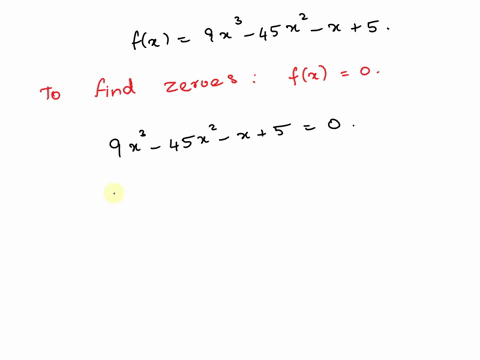 f(x) = 9x³ - 45x² - x + 5.
To find zeroes: f(x) = 0.
9x³ - 45x² - x + 5 = 0.